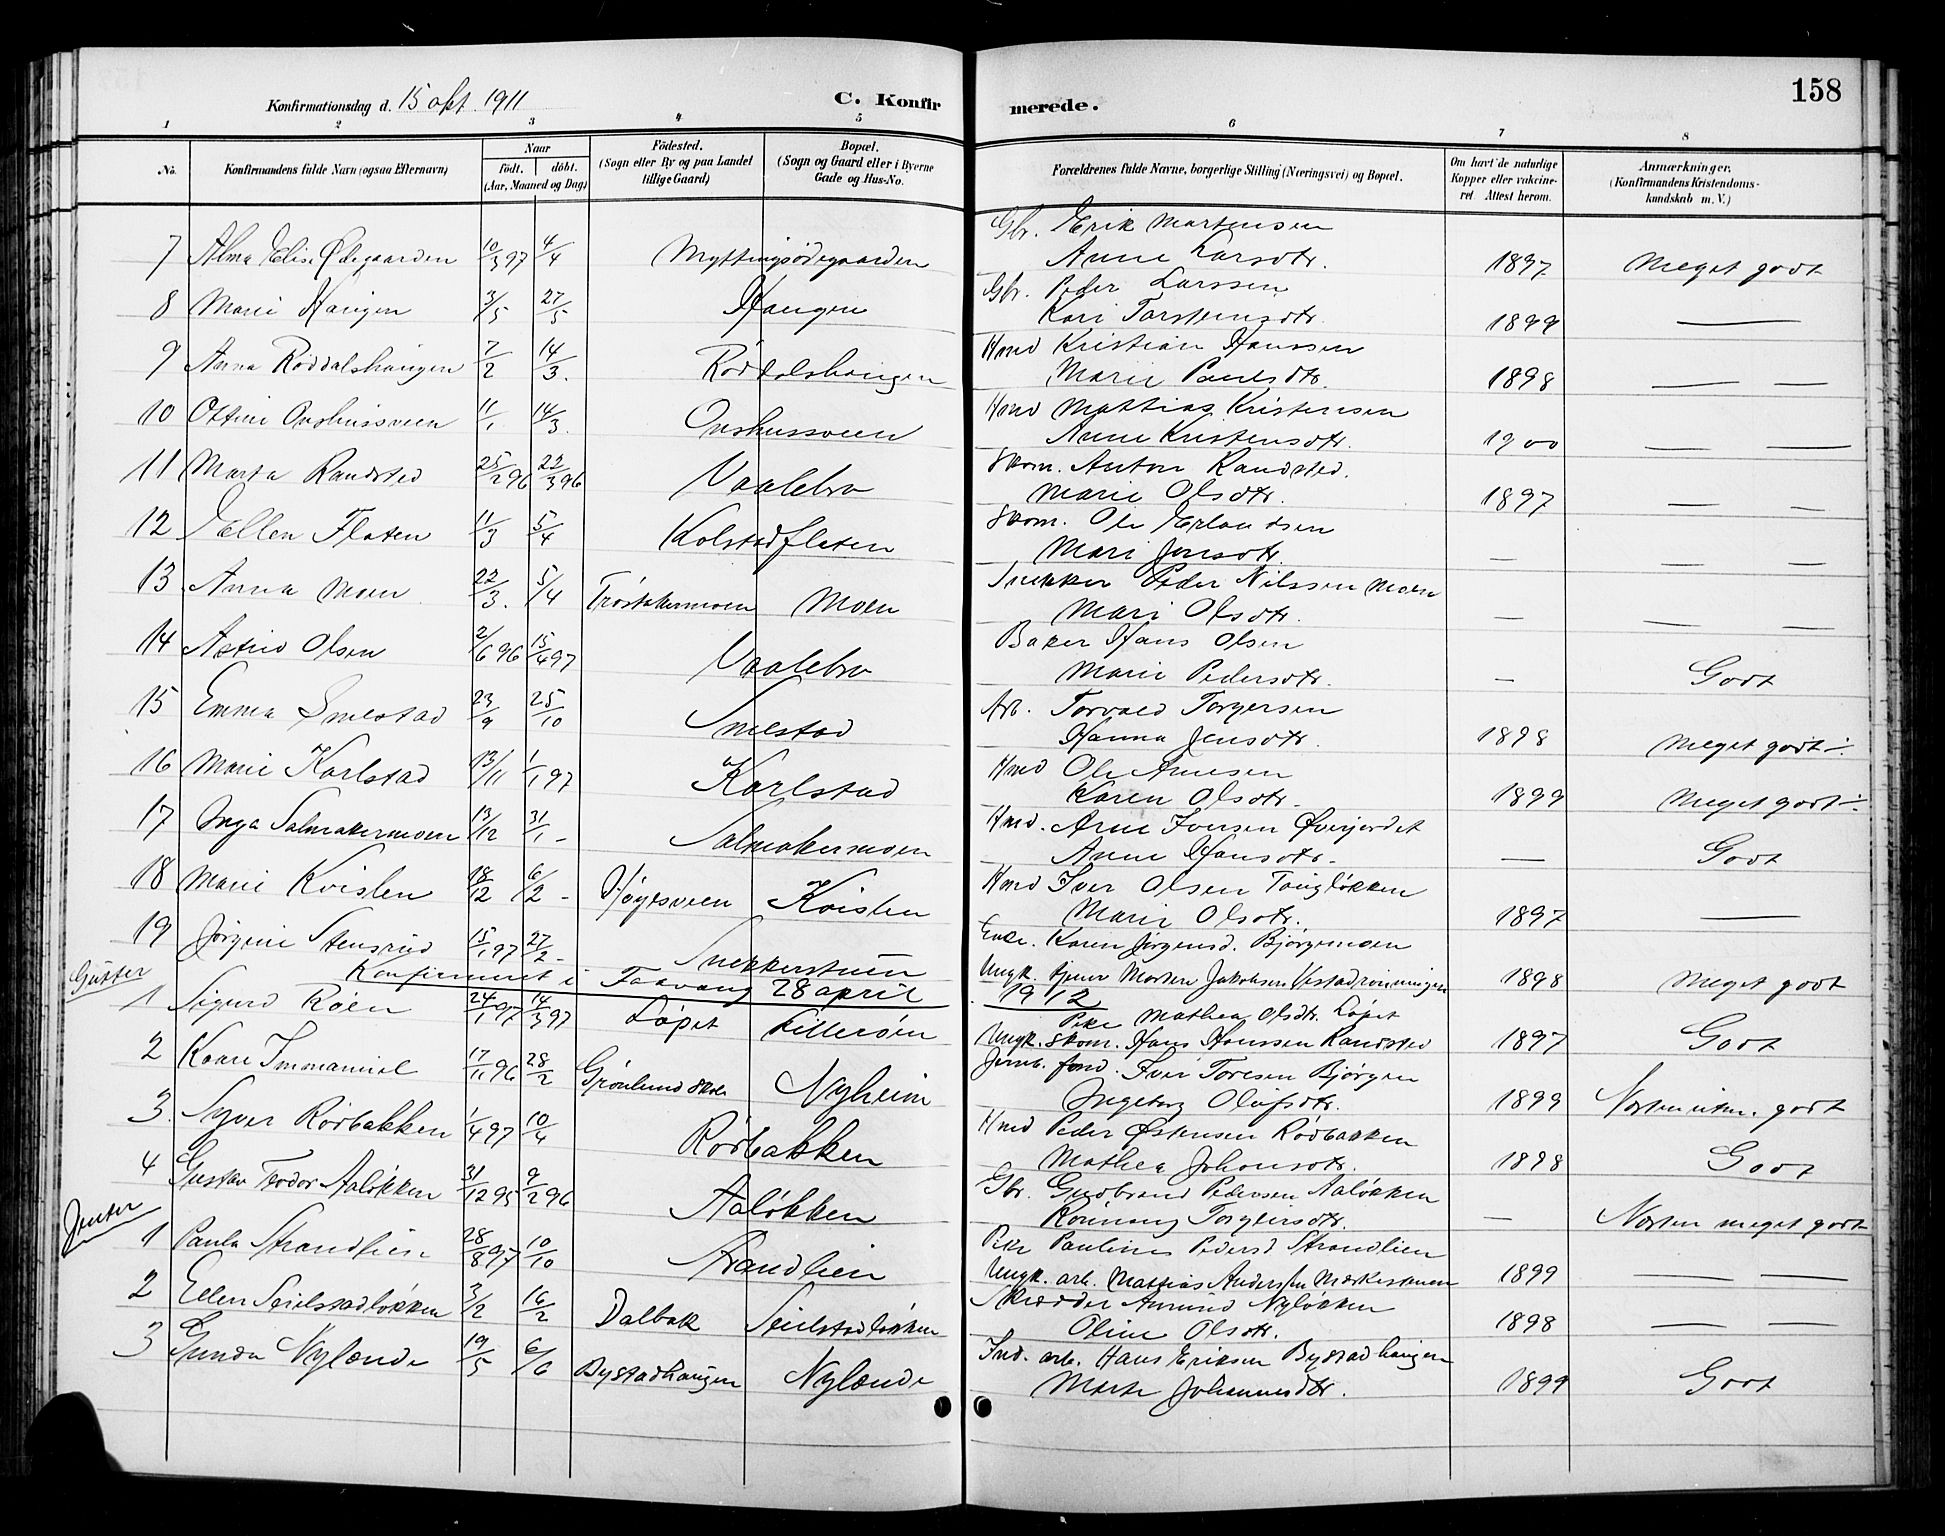 158
Konfirmationsdag d. 15 okt. 1911 C. Konfirmerede.
1 2 3 4 5 6 7 8
No. Konfirmandens fulde Navn (ogsaa Efternavn) Naar født. døbt. (Aar, Maaned og Dag) Fødested. (Sogn eller By og paa Landet tillige Gaard) Bopæl. (Sogn og Gaard eller i Byerne Gade og Hus-No. Forældrenes fulde Navne, borgerlige Stilling (Næringsvei) og Bopæl. Om havt de naturlige Kopper eller vakcineret. Attest herom. Anmærkninger. (Konfirmandens Kristendomskundskab m. V.)
Gbr. Erik Martensen
7 Alma Elise Ødegaarden 10/3 97 4/4 Myttingsødegaarden Anne Larsdtr. 1897 Meget godt
Gbr. Peder Larssen
8 Marie Haugen 3/5 27/5 Haugen Kari Torsteinsdtr. 1899 —
Hmd Kristian Hanssen
9 Anna Røddalshaugen 7/2 14/3. Røddalshaugen Mari Paulsdtr. 1898 — —
Hmd Mattias Kristensen
10 Ottine Onshussveen 11/1 14/3. Onshussveen Anne Kristensdtr. 1900 — —
Skom. Anton Randsted.
11 Marta Randsted 25/2 96 22/3 96 Vaalebro Marie Olsdtr. 1897 — —
Skom. Ole Erlandsen
12 Ellen Flaten 11/3 5/4 Kolstadflaten Mari Jensdtr. — — —
Snekker Peder Nilssen Moen
13 Anna Moen 22/3. 5/4 Trøstakermoen Moen Mari Olsdtr. — — —
Baker Hans Olsen
14 Astrid Olsen 2/6 96 15/4 97 Vaalebro Marie Pedersdtr. — Godt
Arb. Torvald Torgersen
15 Emma Smestad 23/9 25/10 Smestad Hanna Jensdtr. 1898 Meget godt ÷
Hmd Ole Arnesen
16 Marie Karlstad 13/11 1/1 97 Karlstad Karen Olsdtr. 1899 Meget godt ÷
Hmd. Arne Iversen Øverjordet
17 Inga Salmakermoen 13/12 31/1 - Salmakermoen Anne Hansdtr. — Godt
Hmd Iver Olsen Taigløkken
18 Marie Kvislen 18/12 6/2 - Høgesveen Kvislen Marie Olsdtr. 1897 —
Enke. Karen Jørgensd. Bjørgemoen
19 Jørgine Stensrud 15/1 97 27/2 - Snekkerstuen
Ungk. tjener Morten Jakobsen Vestadrønningen 1898 Meget godt
Gutter Konfirmeret i Faavang 28 april 1912
Pike Mathea Olsdtr. Løpet
1 Sigurd Roen 24/1 97 14/3 97 Løpet Lillerøen
Ungk. skom. Hans Hanssen Randsted 1897 Godt
Jernb. fmd. Iver Toresen Bjørgen
2 Kaare Immanuel 17/11 96 28/2 Grønlund skole Nyheim Ingeborg Olufsdtr. 1899 Næsten godt
Hmd Peder Østensen Rødbakken
3. Syver Rødbakken 1/4 97 10/4 Rødbakken Mathea Johansdtr. 1898 Godt
Gbr. Gudbrand Pedersen Aaløkken
4 Gustav Teodor Aaløkken 31/12 95 9/2 96 Aaløkken Rønnaug Torgersdtr. — Næsten meget godt
Jenter
Pike Pauline Pedersd Strandlien
1 Paula Strandlien 28/8 97 10/10 Strandlien
Ungk. arb. Mattias Andersen Mærkestuen 1899 — —
Skrædder Amund Nyløkken
2 Ellen Seielstadløkken 3/2 16/2 Dalbak Seielstadløkken Oline Olsdtr. 1898 — —
Ind. arb. Hans Eriksen Bystadhaugen
3 Gunda Nylænde 19/5 6/6 Bystadhaugen Nylænde Marte Johannesdtr. 1899 Godt